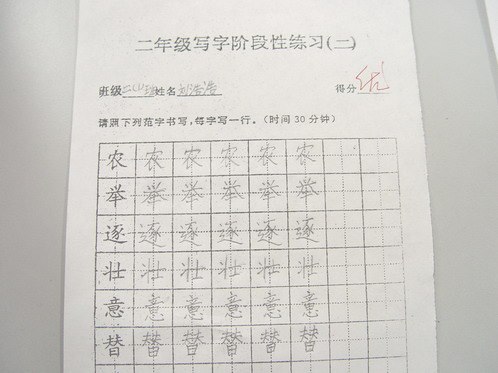 二年级写字阶段性练习(二)
班级二(1)班姓名 得分 优
请照下列范字书写,每字写一行。(时间30分钟)
农 农 农 农 农 农
举 举 举 举 举 举
逐 逐 逐 逐 逐 逐
壮 壮 壮 壮 壮 壮
意 意 意 意 意 意
替 替 替 替 替 替